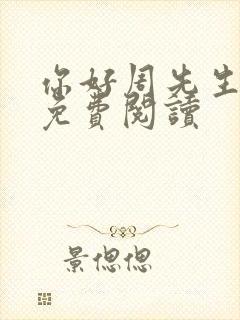 你好周先生
免費閱讀
景偲偲